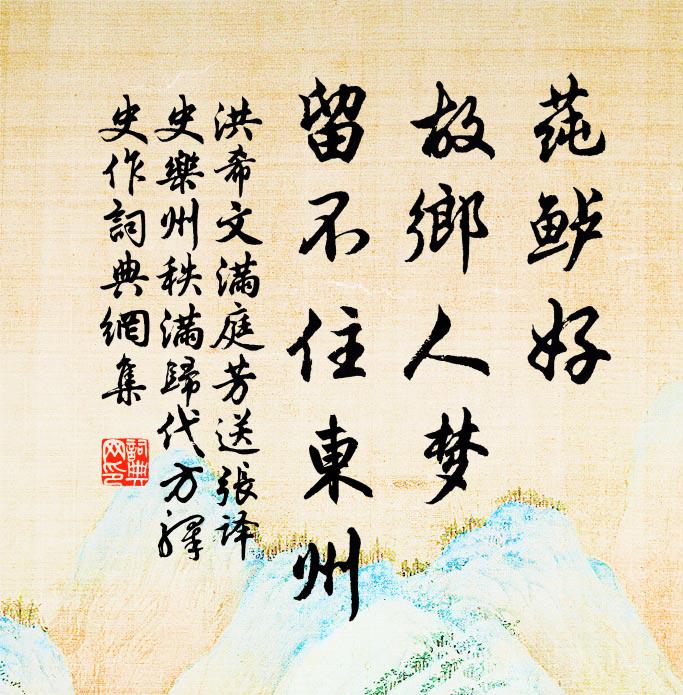 莼鲈好
故鄉人梦
留不住東州
洪希文滿庭芳送張译
史樂州秩滿歸代方譯
史作詞典網集
詞典网印